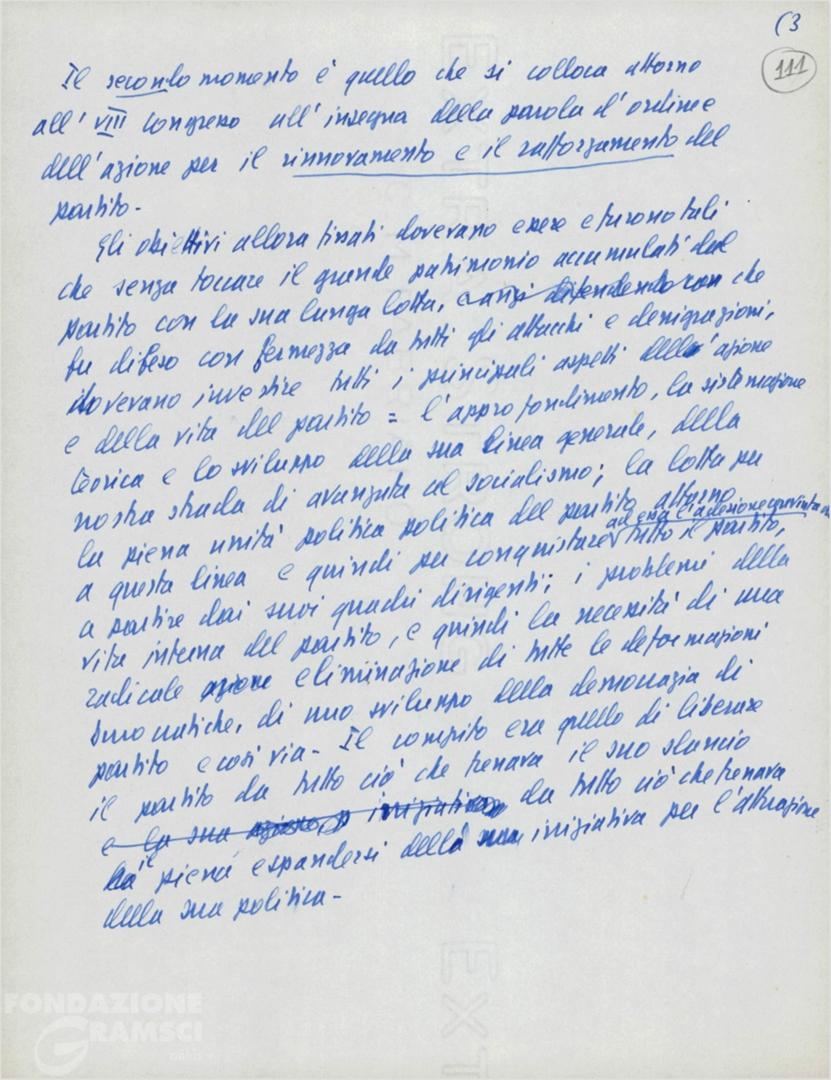 (3
111
Il secondo momento è quello che si colloca attorno
all'VIII Congresso all'insegna della parola d'ordine
dell'azione per il rinnovamento e il rafforzamento del
partito-
Gli obiettivi allora fissati dovevano essere e furono tali
che senza toccare il grande patrimonio accumulati dal
partito con la sua lunga lotta, e anzi difendendolo con che
fu difeso con fermezza da tutti gli attacchi e denigrazioni,
dovevano investire tutti i principali aspetti dell'azione
e della vita del partito = l'approfondimento, la sistemazione
teorica e lo sviluppo della sua linea generale, della
nostra strada di avanzata al socialismo; la lotta per
la piena unità politica politica del partito attorno
a questa linea e quindi per conquistare ad essa l'adesione convinta di tutto il partito,
a partire dai suoi quadri dirigenti; i problemi della
vita interna del partito, e quindi la necessità di una
radicale azione eliminazione di tutte le deformazioni
burocratiche, di uno sviluppo della democrazia di
partito e così via- Il compito era quello di liberare
il partito da tutto ciò che frenava il suo slancio
e la sua azione, iniziativa da tutto ciò che frenava
il pieno espandersi della sua iniziativa per l'attuazione
della sua politica-
FONDAZIONE
GRAMSCI